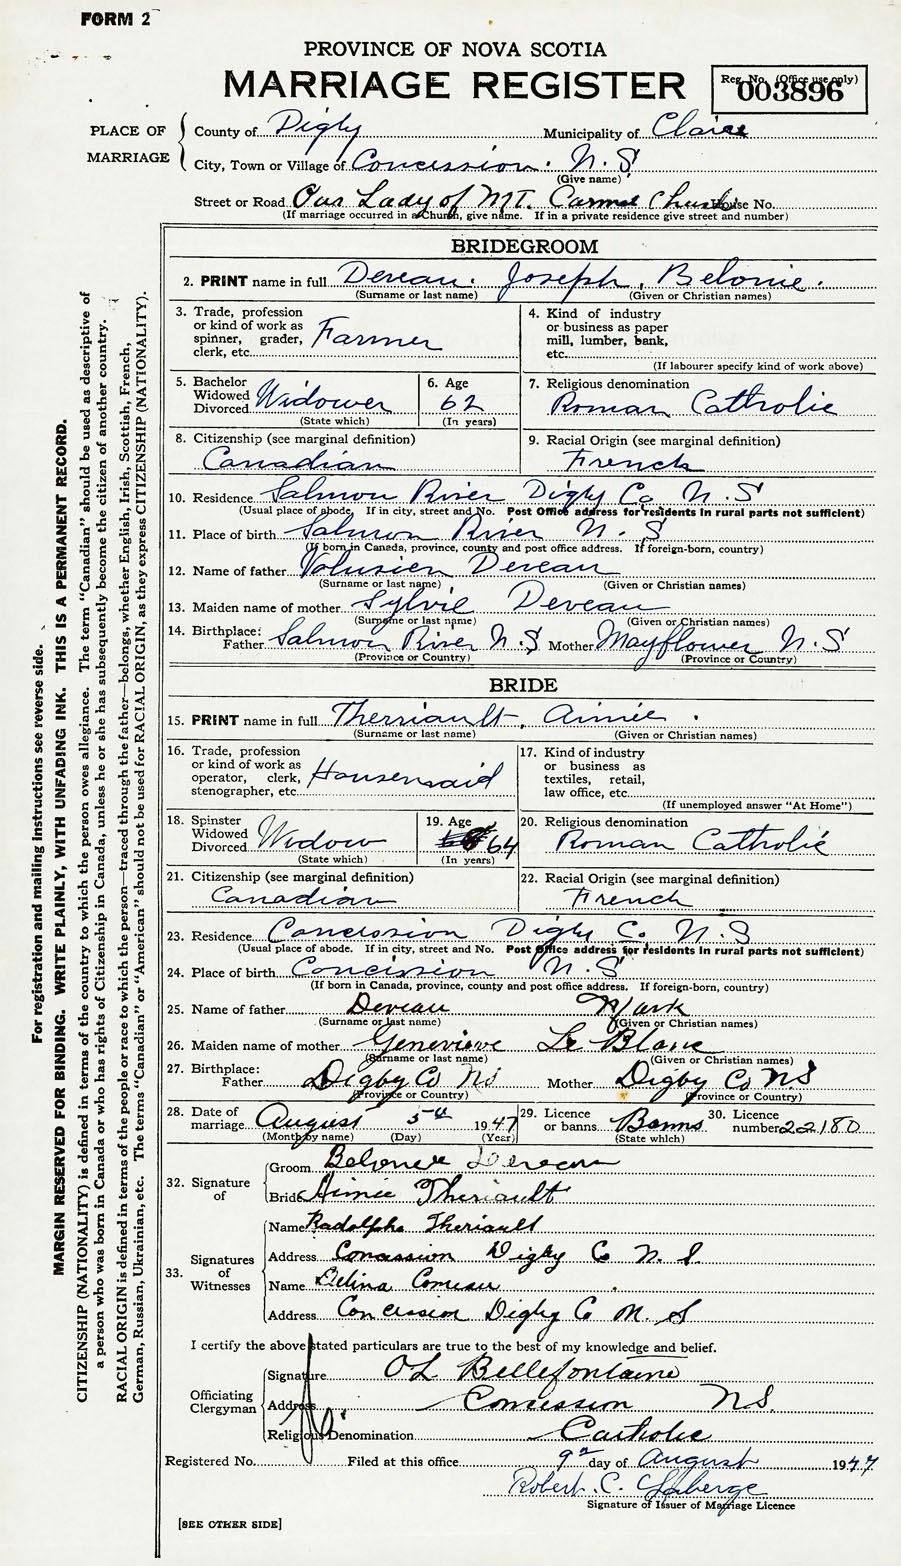 FORM 2
PROVINCE OF NOVA SCOTIA
MARRIAGE REGISTER
Reg. No. (Office use only)
003896
PLACE OF MARRIAGE
County of Digby Municipality of Clare
City, Town or Village of Concession. N.S
(Give name)
Street or Road Our Lady of MT. Carmel Church House No.
(If marriage occurred in a Church, give name. If in a private residence give street and number)
BRIDEGROOM
2. PRINT name in full Deveau. Joseph, Belonie.
(Surname or last name) (Given or Christian names)
3. Trade, profession or kind of work as spinner, grader, clerk, etc. Farmer
4. Kind of industry or business as paper mill, lumber, bank, etc.
(If labourer specify kind of work above)
5. Bachelor Widowed Divorced Widower
(State which)
6. Age 62
(In years)
7. Religious denomination
Roman Cathrolic
8. Citizenship (see marginal definition)
Canadian
9. Racial Origin (see marginal definition)
French
10. Residence Salmon River Digby Co N.S
(Usual place of abode. If in city, street and No. Post Office address for residents in rural parts not sufficient)
11. Place of birth Salmon River N.S
(If born in Canada, province, county and post office address. If foreign-born, country)
12. Name of father Volusien Deveau
(Surname or last name) (Given or Christian names)
13. Maiden name of mother Sylvie Deveau
(Surname or last name) (Given or Christian names)
14. Birthplace: Father Salmon River N.S Mother Mayflower N.S
(Province or Country) (Province or Country)
BRIDE
15. PRINT name in full Therriault, Aimée.
(Surname or last name) (Given or Christian names)
16. Trade, profession or kind of work as operator, clerk, stenographer, etc. Housemaid
17. Kind of industry or business as textiles, retail, law office, etc.
(If unemployed answer "At Home")
18. Spinster Widowed Divorced Widow
(State which)
19. Age 64
(In years)
20. Religious denomination
Roman Cathrolic
21. Citizenship (see marginal definition)
Canadian
22. Racial Origin (see marginal definition)
French
23. Residence Concession Digby Co. N.S
(Usual place of abode. If in city, street and No. Post Office address for residents in rural parts not sufficient)
24. Place of birth Concission N.S
(If born in Canada, province, county and post office address. If foreign-born, country)
25. Name of father Deveau Mark
(Surname or last name) (Given or Christian names)
26. Maiden name of mother Genevieve Le Blanc
(Surname or last name) (Given or Christian names)
27. Birthplace: Father Digby Co NS Mother Digby Co NS
(Province or Country) (Province or Country)
28. Date of marriage August 5th 1947
(Month by name) (Day) (Year)
29. Licence or banns Banns
(State which)
30. Licence number 22180
32. Signature of
Groom Belonie Deveau
Bride Aimée Theriault
33. Signatures of Witnesses
Name Radolphe Theriault
Address Concession Digby Co N.S.
Name Delina Comeau
Address Concession Digby Co N. S
I certify the above stated particulars are true to the best of my knowledge and belief.
Officiating Clergyman
Signature OL Bellefontaine
Address Concession NS.
Religious Denomination Catholic
Registered No. Filed at this office 9th day of August 1947
Robert C.
Signature of Issuer of Marriage Licence
[SEE OTHER SIDE]
For registration and mailing instructions see reverse side.
MARGIN RESERVED FOR BINDING. WRITE PLAINLY, WITH UNFADING INK. THIS IS A PERMANENT RECORD.
CITIZENSHIP (NATIONALITY) is defined in terms of the country to which the person owes allegiance. The term "Canadian" should be used as descriptive of
a person who was born in Canada or who has rights of Citizenship in Canada, unless he or she has subsequently become the citizen of another country.
RACIAL ORIGIN is defined in terms of the people or race to which the person—traced through the father—belongs, whether English, Irish, Scottish, French,
German, Russian, Ukrainian, etc. The terms "Canadian" or "American" should not be used for RACIAL ORIGIN, as they express CITIZENSHIP (NATIONALITY).